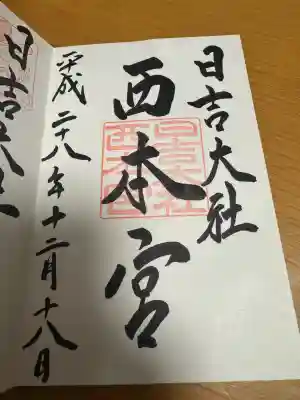 日吉大社
西本宮
平成二十八年十二月十八日
日吉大社